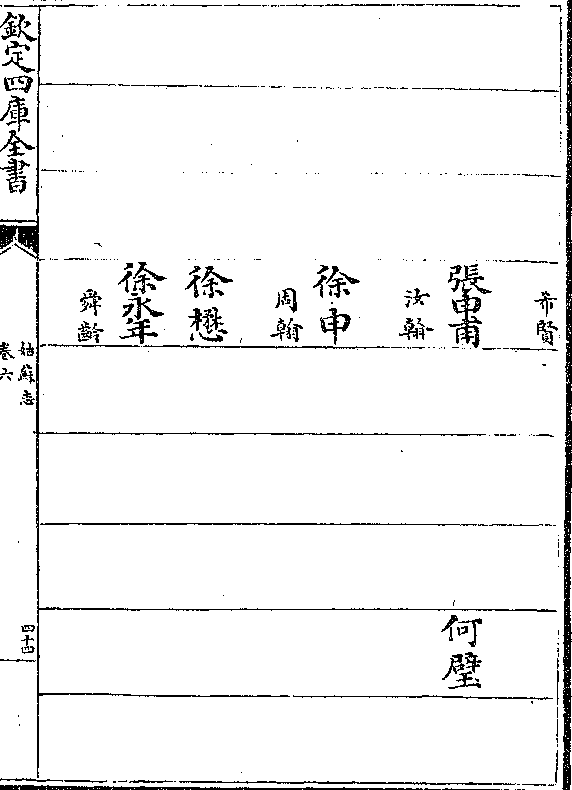 希賢
張申甫
汝翰
徐申
周翰
徐懋
徐永年
舜齡
何璧
欽定四庫全書
姑蘇志
卷六
四十四